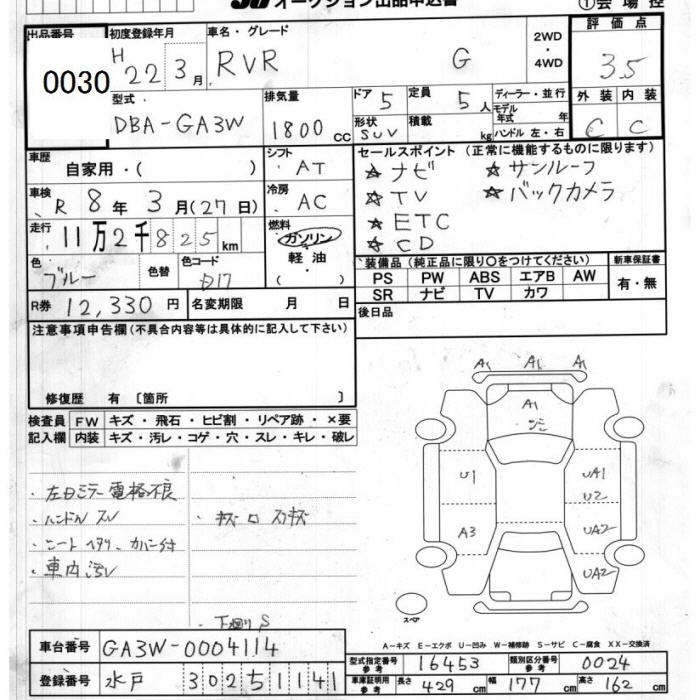 オークション出品申込書
①会場控
出品番号 初度登録年月 車名・グレード 評価点
0030 H 22 3月 RVR G 2WD・4WD 3.5
型式 排気量 ドア 定員 ディーラー・並行 外装 内装
DBA-GA3W 1800 CC 5 5人 モデル年式 年 C C
形状 SUV 積載 kg ハンドル 左・右
車歴 シフト セールスポイント (正常に機能するものに限ります)
自家用・( ) AT ☆ナビ ☆サンルーフ
車検 冷房 ☆TV ☆バックカメラ
R 8年 3月(27日) AC ☆ETC
走行 燃料 ☆CD
11万2千825km ガソリン
色 色替 色コード 軽油 装備品 (純正品に限り○をつけてください) 新車保証書
ブルー D17 ( ) PS PW ABS エアB AW 有・無
SR ナビ TV カワ
R券 12,330円 名変期限 月 日 後日品
注意事項申告欄 (不具合内容等は具体的に記入して下さい)
修復歴 有 〔箇所 〕
検査員 FW キズ・飛石・ヒビ割・リペア跡・×要
記入欄 内装 キズ・汚レ・コゲ・穴・スレ・キレ・破レ
・左ドアミラー電格不良
・ハンドル スレ
・シート ヘタリ、カバー付
・車内汚レ
・下廻りS
A1 A1 A1
A1
U1 UA1
U2
A3 UA2
UA2
スペア
A-キズ E-エクボ U-凹み W-補修跡 S-サビ C-腐食 XX-交換済
車台番号 GA3W-0004114
型式指定番号 参考 16453 類別区分番号 参考 0024
登録番号 水戸 302 51141
車庫証明用 参考 長さ 429cm 幅 177cm 高さ 162cm